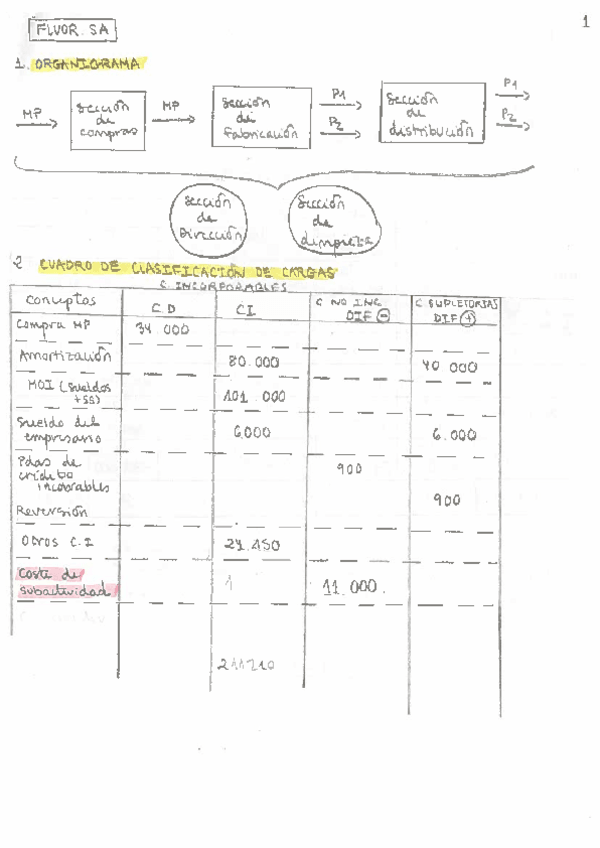 1
FLUOR. SA
1. ORGANIGRAMA
MP
Sección de compras
MP
Sección de Fabricación
P1
P2
Sección de distribución
P1
P2
Sección de Dirección
Sección de Limpieza
2 CUADRO DE CLASIFICACIÓN DE CARGAS
C. INCORPORABLES
Conceptos CD CI C NO INC DIF (-) C SUPLETORIAS DIF (+)
Compra MP 34.000
Amortización 80.000 40 000
MOI (Sueldos +SS) 101.000
Sueldo del empresario 6000 6.000
Pdas de crédito incobrables 900
Reversión 900
Otros C.I
Coste de subactividad 11.000.